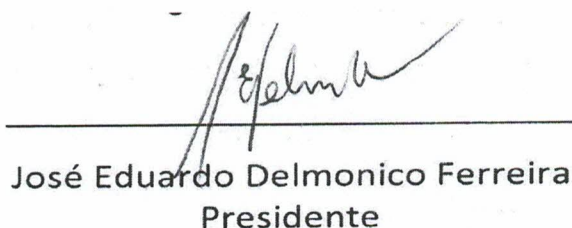 José Eduardo Delmonico Ferreira
Presidente